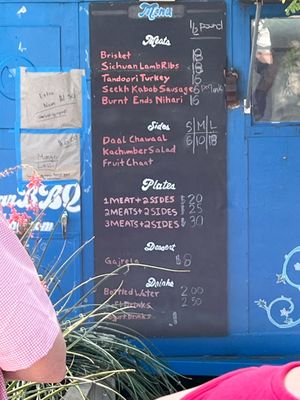 Menu
1/2 pound
Meats
Brisket
Sichuan Lamb Ribs
Tandoori Turkey
Seekh Kabob Sausage per link
Burnt Ends Nihari 16
Sides S M L
Daal Chawal 6 10 18
Kachumber Salad
Fruit Chaat
Plates
1 MEAT + 2 SIDES $20
2 MEATS + 2 SIDES $25
3 MEATS + 2 SIDES $30
Dessert
Gajrela $8
Drinks
Bottled Water 2.00
Soft Drinks 2.50
Extra
Naan
BBQ